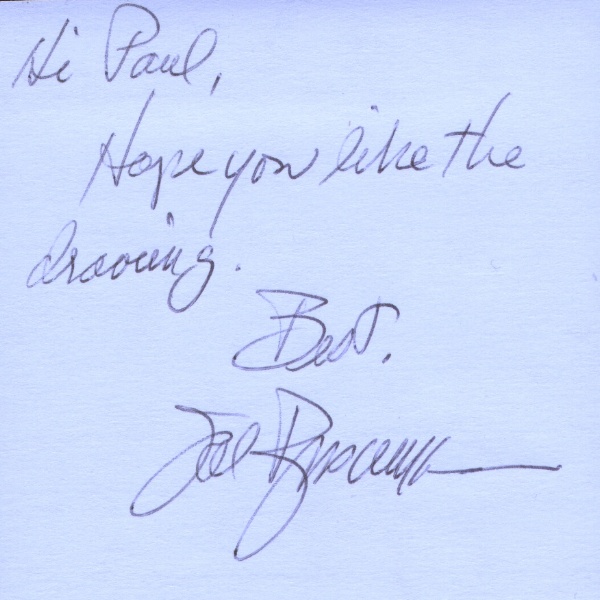 Hi Paul,
Hope you like the
drawing.
Best,
Joe